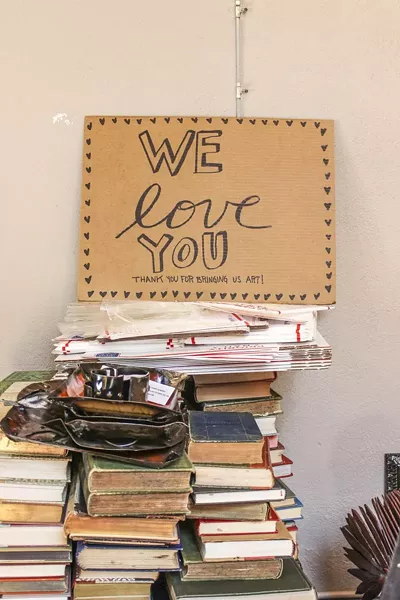 WE
love
YOU
THANK YOU FOR BRINGING US ART!